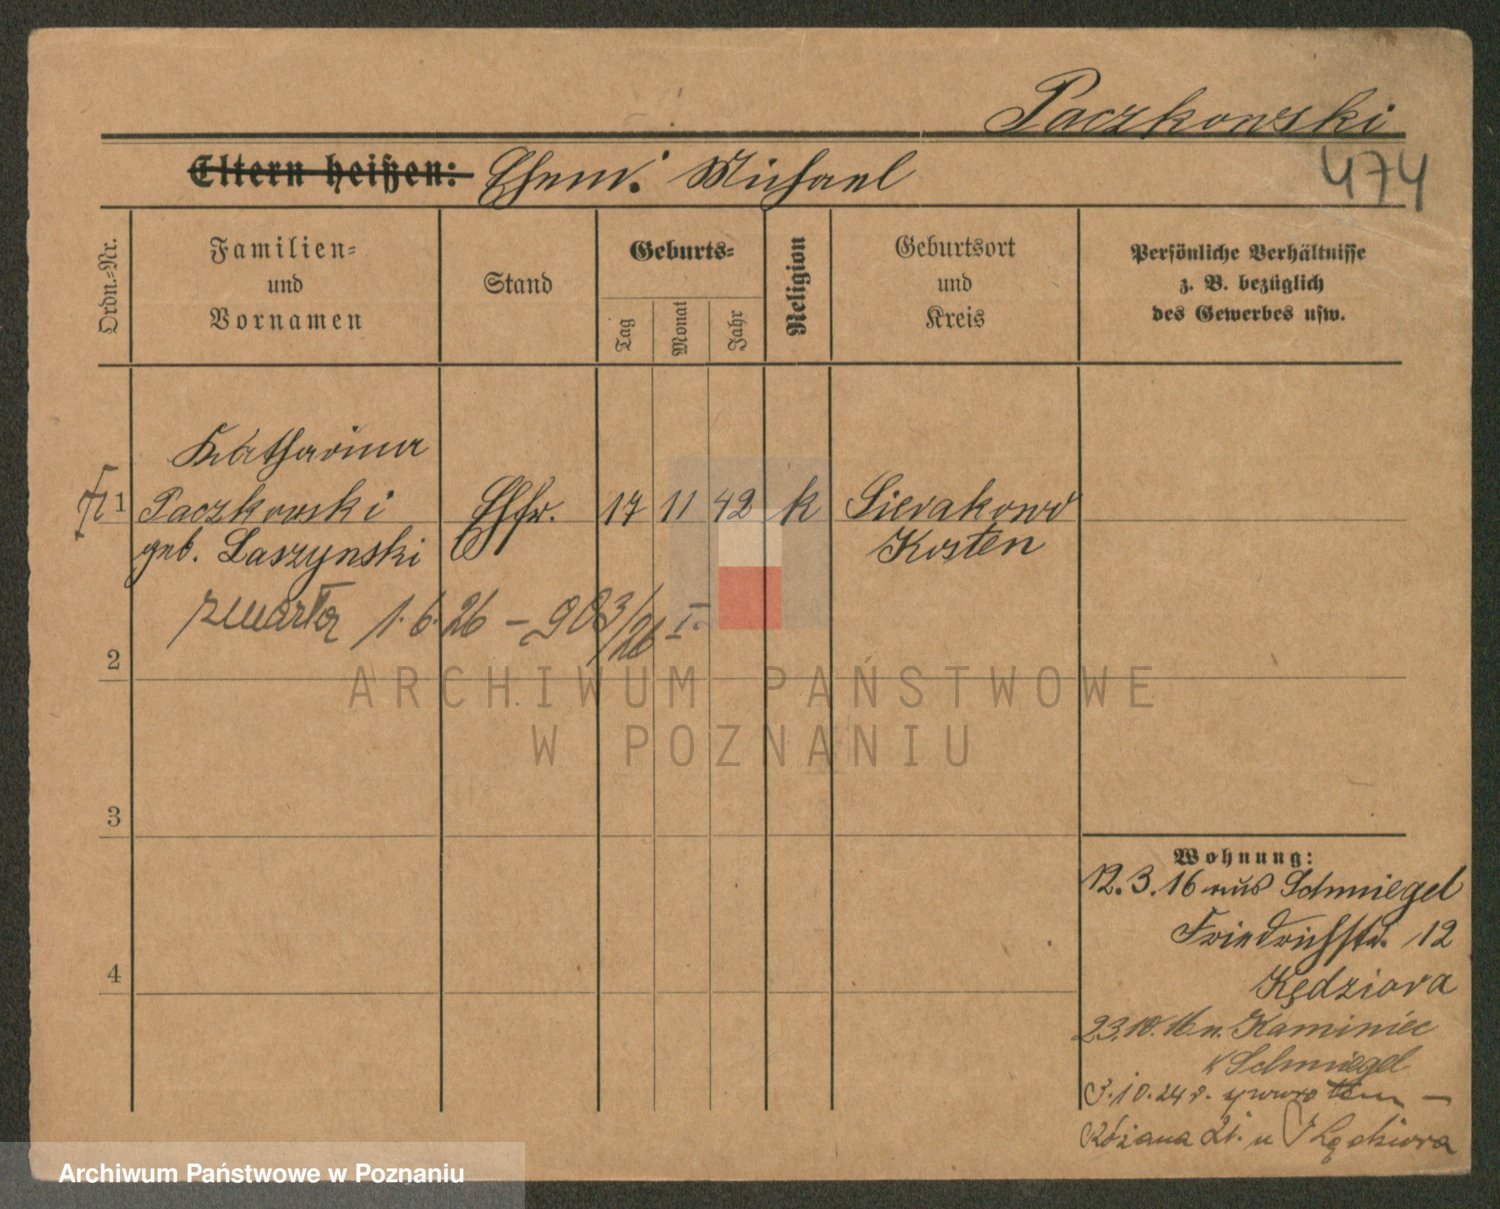 Paczkowski
474
Eltern heißen: Ehem. Michael
Ordn.-Nr.
Familien- und Vornamen
Stand
Geburts-
Tag
Monat
Jahr
Religion
Geburtsort und Kreis
Persönliche Verhältnisse z. B. bezüglich des Gewerbes usw.
Katharina
1 Paczkowski Ehfr. 17 11 42 k Sierakowo
geb. Laszynski Kosten
zmarła 1.6.26 – 903/26 I.
2
ARCHIWUM PAŃSTWOWE
W POZNANIU
3
4
Wohnung:
12.3.16 aus Schmiegel
Friedrichstr. 12
Kędziora
23.10.16 n. Kaminiec
K Schmiegel
3.10.24 r. z powrotem –
Różana 21. u Kędziora
Archiwum Państwowe w Poznaniu